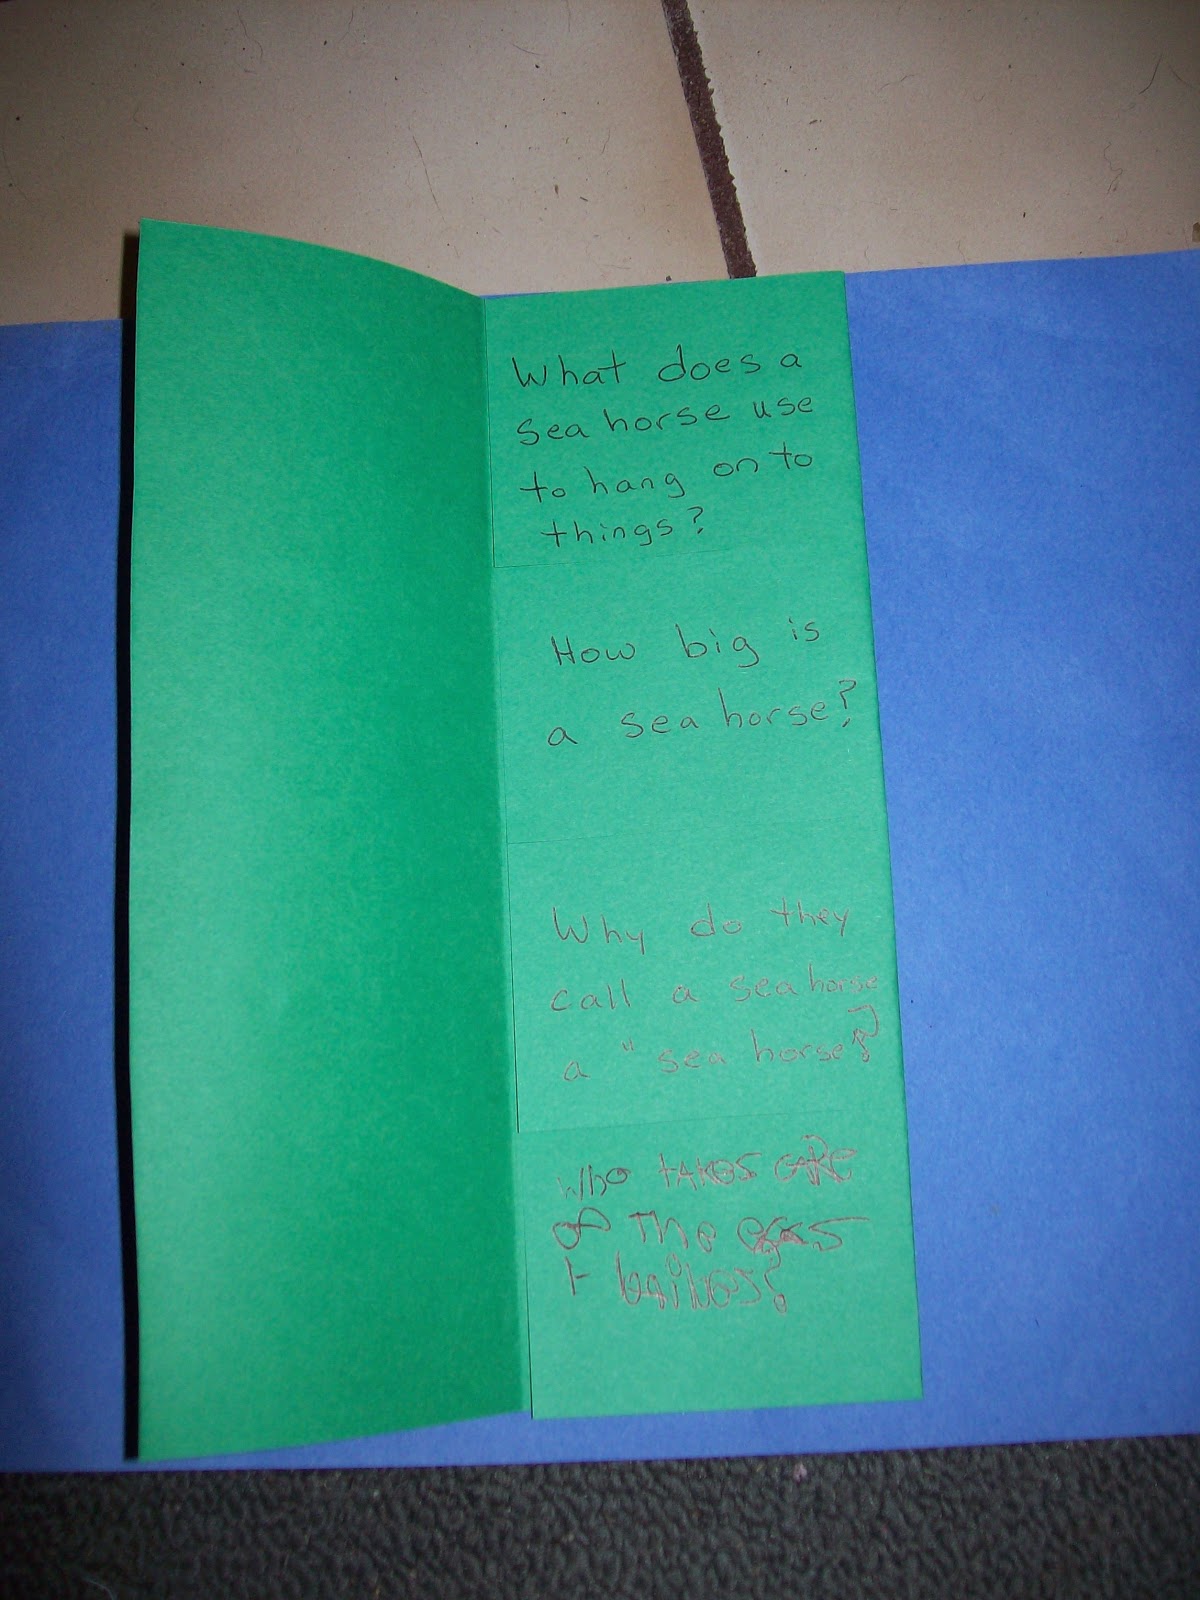 What does a
sea horse use
to hang on to
things?
How big is
a sea horse?
Why do they
call a sea horse
a "sea horse"?
Who takes care
of The eggs
+